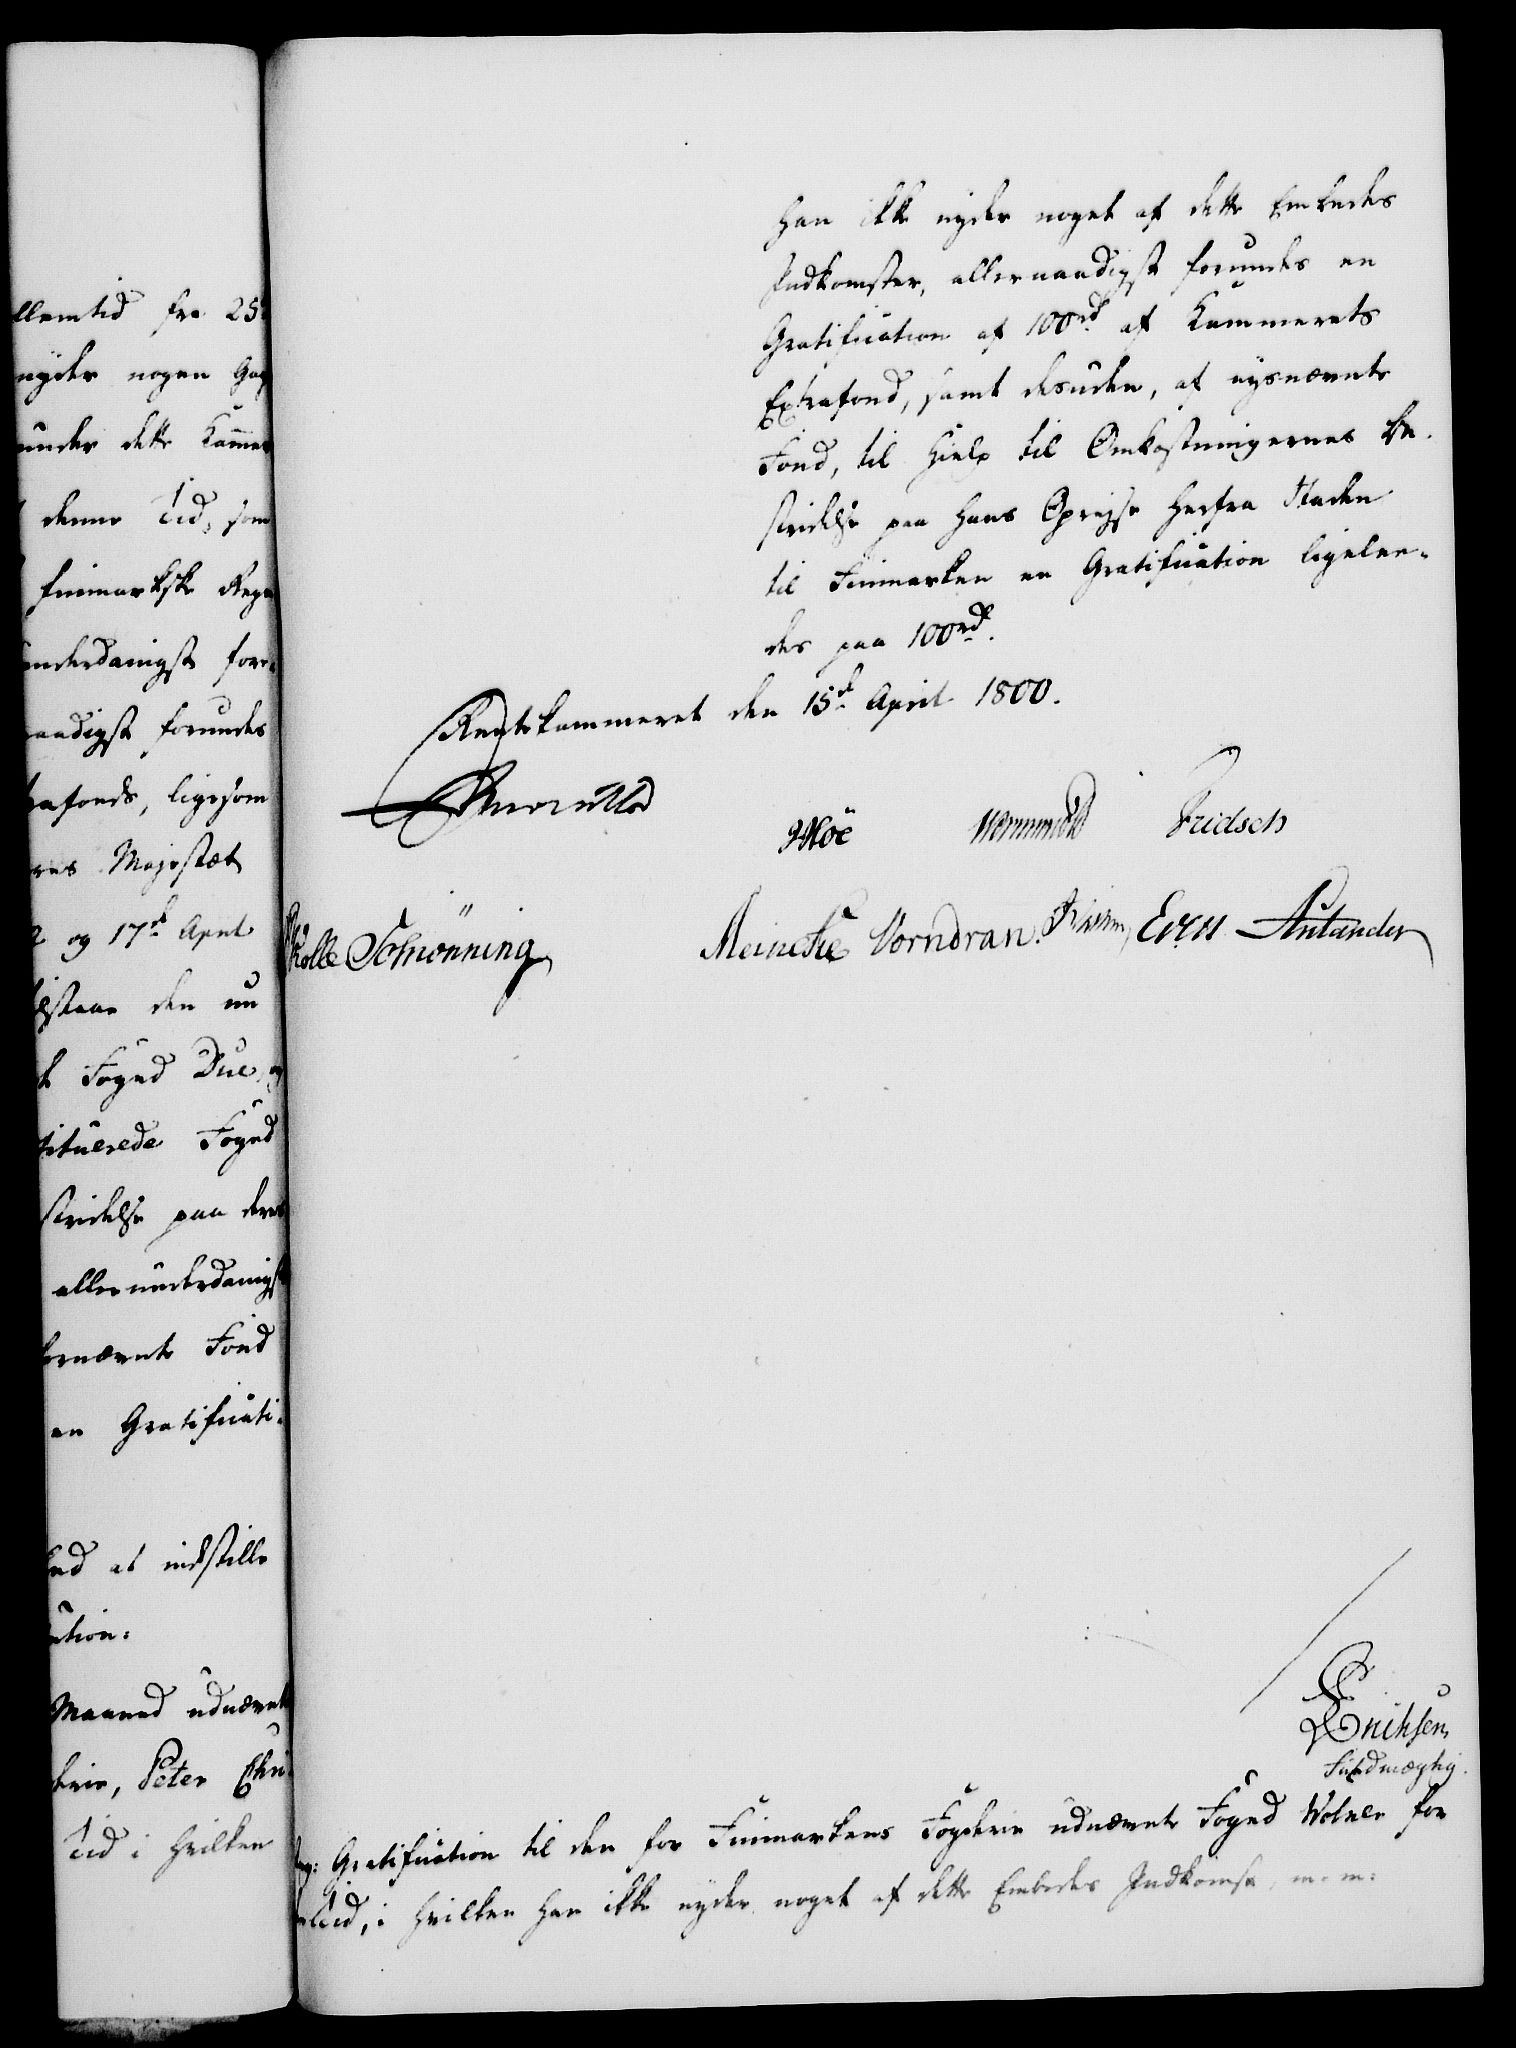 llemtid fra 25
nyder nogen Gag
under dette Kammer
denne Tid, som
finmarkske Reg
underdanigst fore
naadigst forundes
rafonds, ligesom
res Majestæt
og 17de April
den nu
Foged Due, og
tituerede Foged
stridelse paa deres
allerunderdanigst
nævnte Fond
en Gratificati-
at indstille
ution:
Maaned udnævnte
derie, Peter Chri-
Tid i hvilken
han ikke nyder noget af dette Embedes
Indkomster, allernaadigst forundes en
Gratification af 100rd af Kammerets
Extrafond, samt desuden, af nysnævnte
Fond, til Hielp til Omkostningernes be-
stridelse paa hans Opreyse herfra Staden
til Finmarken en Gratification ligelee-
des paa 100rd.
Rentekammeret den 15de April 1800.
Moe Wormskiold Fridsch
Schiønning Meincke Vorndran. Even Aulander
Erichsen
Fuldmægtig.
Gratification til den for Finmarkens Fogderie udnævnte Foged Wolner for
Tid, i hvilken han ikke nyder noget af dette Embedes Indkomst, m. m: